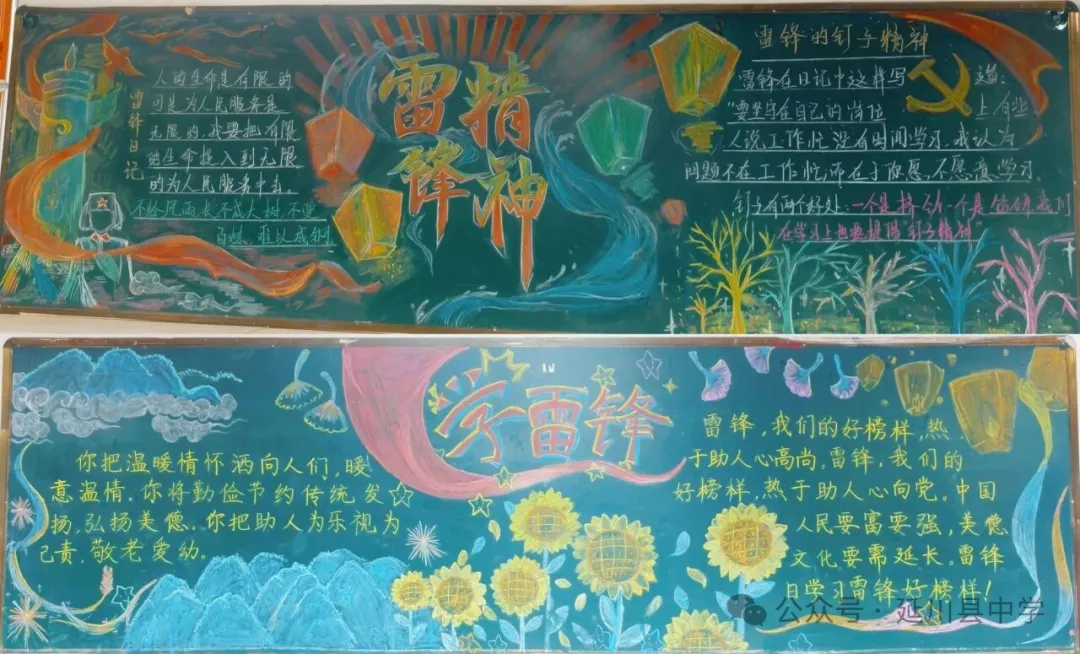 雷锋日记
人的生命是有限的
可是为人民服务是
无限的,我要把有限
的生命投入到无限
的为人民服务中去。
不经风雨,长不成大树,不受
百炼,难以成钢
雷锋
精神
雷锋的钉子精神
雷锋在日记中这样写道:
"要坚守在自己的岗位上,有些
人说工作忙没有时间学习,我认为
问题不在工作忙,而在于你愿,不愿意学习。
钉子有两个好处:一个是挤劲一个是钻研我们
在学习上也要提倡"钉子精神"
学雷锋
你把温暖情怀洒向人们,暖
意温情。你将勤俭节约传统发
扬,弘扬美德。你把助人为乐视为
己责,敬老爱幼。
雷锋,我们的好榜样,热
于助人心高尚,雷锋,我们的
好榜样,热于助人心向党。中国
人民要富要强,美德
文化要需延长。雷锋
日学习雷锋好榜样!
公众号·延川县中学